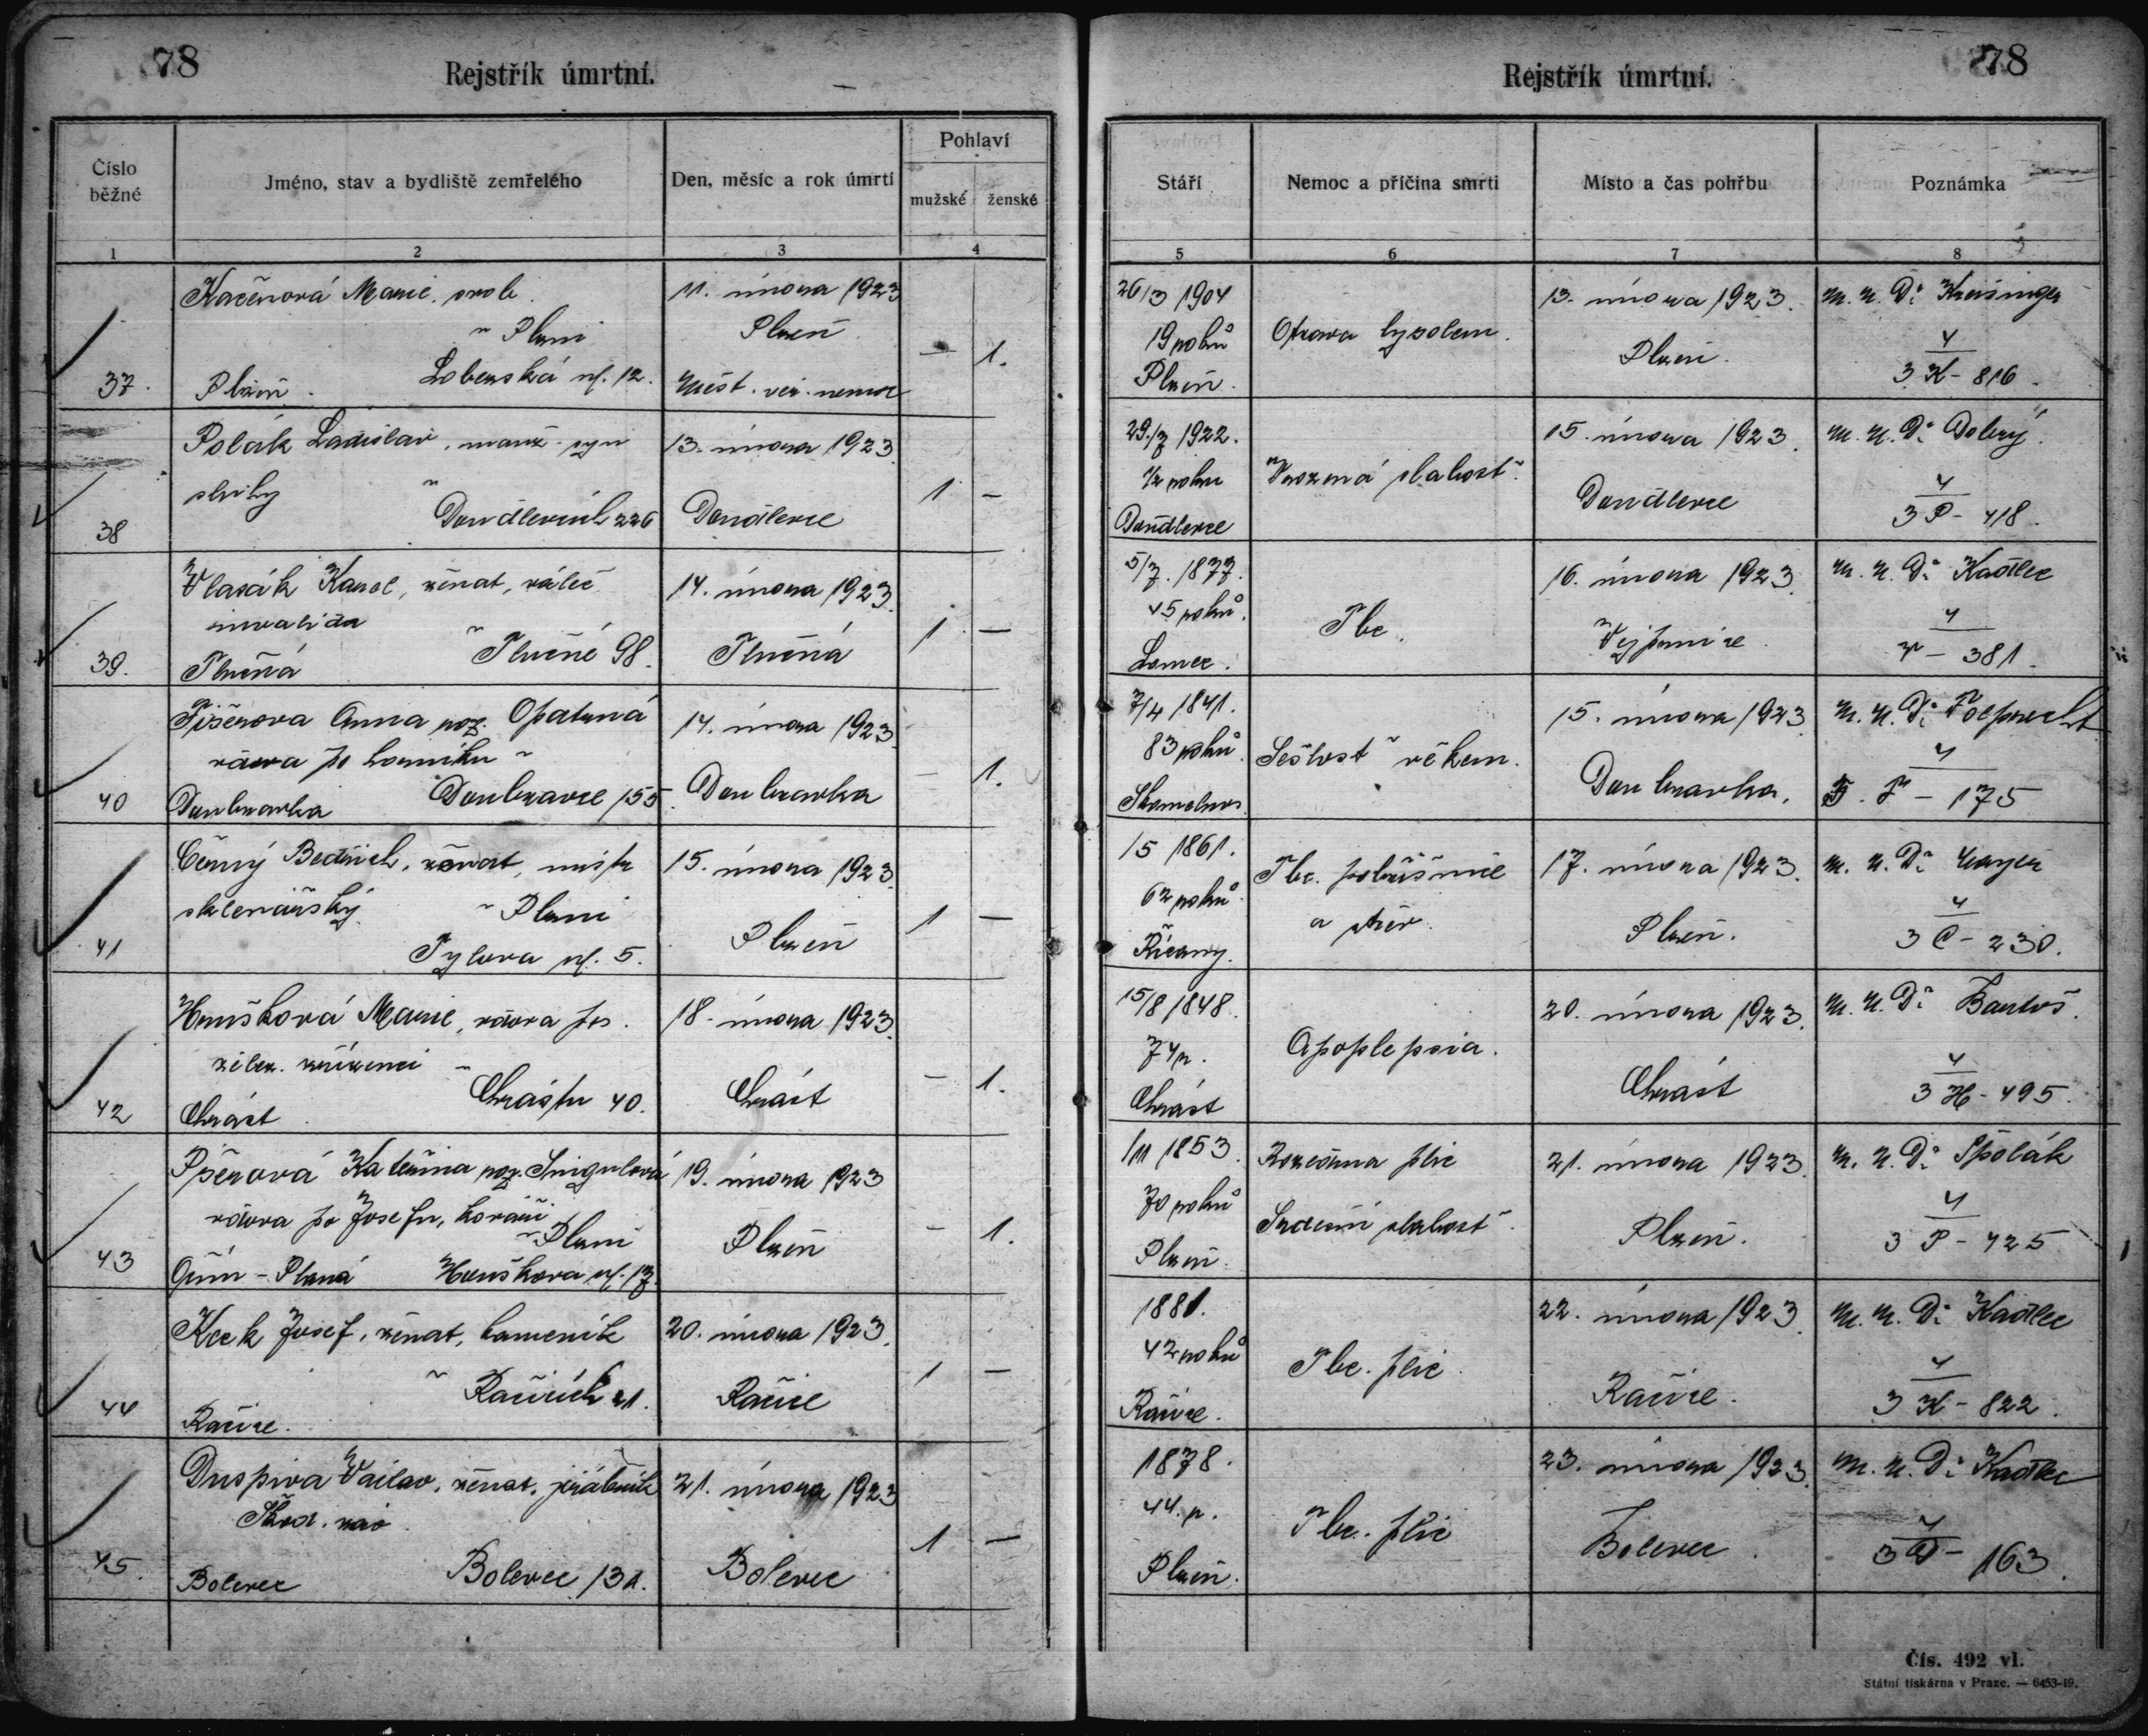 78
Rejstřík úmrtní.
Číslo běžné
Jméno, stav a bydliště zemřelého
Den, měsíc a rok úmrtí
Pohlaví
mužské
ženské
1
2
3
4
37.
Kačerová Marie, svob.
v Plzni
Plzeň.
Lobezská ul. 12.
11. února 1923
Plzeň
měst. veř. nemoc
—
1.
38
Polák Ladislav, manž. syn
sluhy
v Doudlevcích 226
13. února 1923
Doudlevce
1
—
39.
Vlasák Karel, ženat, váleč.
invalida
v Tlučné 98.
Tlučná
14. února 1923.
Tlučná
1
—
40
Anna roz. Opatrná
vdova po horníku v
Doubravka
Doubravce 155.
14. února 1923
Doubravka
—
1.
41
Černý Bedřich, ženat, mistr
sklenářský
v Plzni
Tylova ul. 5.
15. února 1923.
Plzeň
1
—
42
Houšková Marie, vdova po
želez. zřízenci v
Chrástu 40.
Chrást
18. února 1923
Chrást
—
1.
43
Kateřina roz.
vdova po Josefu, kováři
v Plzni
- Planá
Houškova ul. 17.
19. února 1923
Plzeň
—
1.
44
Kcek Josef, ženat, kameník
v Račicích 21.
Račice.
20. února 1923.
Račice
1
—
45.
Duspiva Václav, ženat, jeřábník
Škod. záv.
Bolevec
Bolevec 131.
21. února 1923
Bolevec
1
—
78
Rejstřík úmrtní.
Stáří
Nemoc a příčina smrti
Místo a čas pohřbu
Poznámka
5
6
7
8
26/3 1904
19 roků
Plzeň.
Otrava lysolem.
13. února 1923.
Plzeň.
m. u. Dr Kreisinger
4
3 K - 816.
29./7 1922.
1/2 roku
Doudlevce
Vrozená slabost.
15. února 1923.
Doudlevce
m. u. Dr Dobrý.
4
3 P - 418.
5/7. 1877.
45 roků.
Lomec.
Tbc.
16. února 1923.
Vejprnice.
m. u. Dr Kadlec
4
V - 381.
7/4 1841.
83 roků.
Sešlost věkem.
15. února 1923.
Doubravka.
m. u. Dr
4
- 175
15 1861.
62 roků.
Říčany.
Tbc. pobřišnice
a střev.
17. února 1923.
Plzeň.
m. u. Dr
4
3 Č - 230.
15/8 1848.
74 r.
Chrást
Apoplepsia.
20. února 1923.
Chrást
m. u. Dr Bartoš.
4
3 H - 495.
1/11 1853.
70 roků
Plzeň.
Rozedma plic
Srdeční slabost.
21. února 1923.
Plzeň.
m. u. Dr Špolák
4
3 P - 425
1881.
42 roků
Račice.
Tbc. plic.
22. února 1923.
Račice.
m. u. Dr Kadlec
4
3 K - 822.
1878.
44. r.
Plzeň.
Tbc. plic
23. února 1923.
Bolevec.
m. u. Dr Kadlec
4
3 D - 163.
Čís. 492 vl.
Státní tiskárna v Praze. — 6453-19.